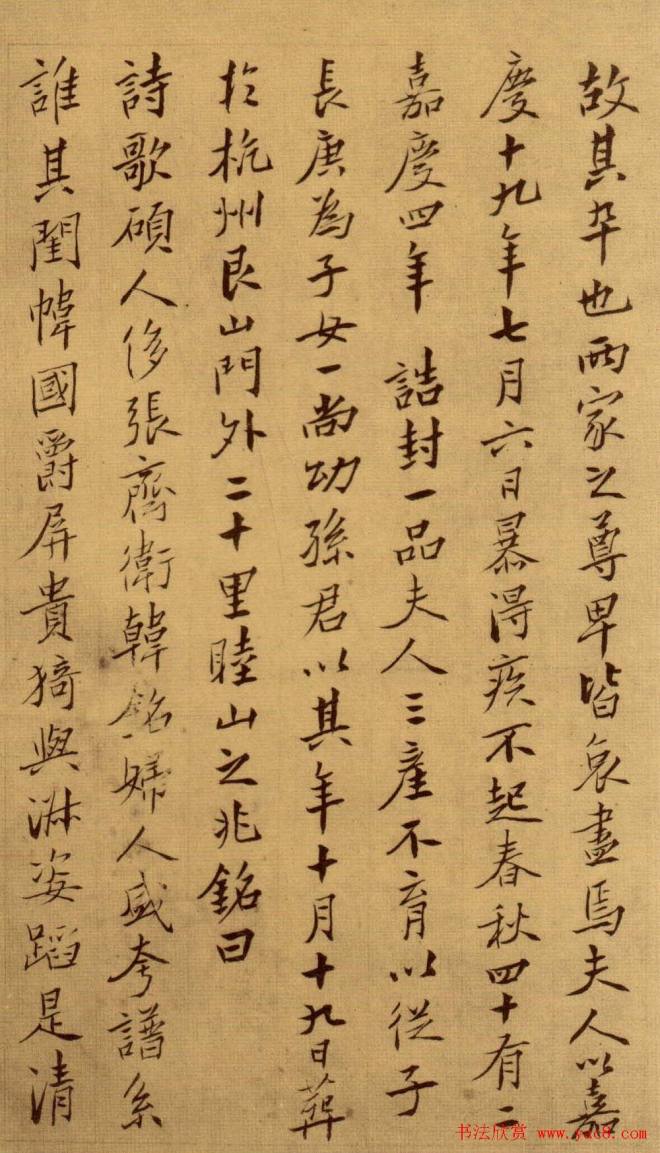 故其卒也兩家之尊卑皆哀盡焉夫人以嘉
慶十九年七月六日暴得疾不起春秋四十有二
嘉慶四年 誥封一品夫人三產不育以從子
長庚為子女一尚幼孫君以其年十月十九日葬
於杭州艮山門外二十里睦山之兆銘曰
詩歌碩人侈張齊衛韓銘婦人盛夸譜系
誰其閨幃國爵屏貴猗與淋姿蹈是清
书法欣赏 www.yac8.com